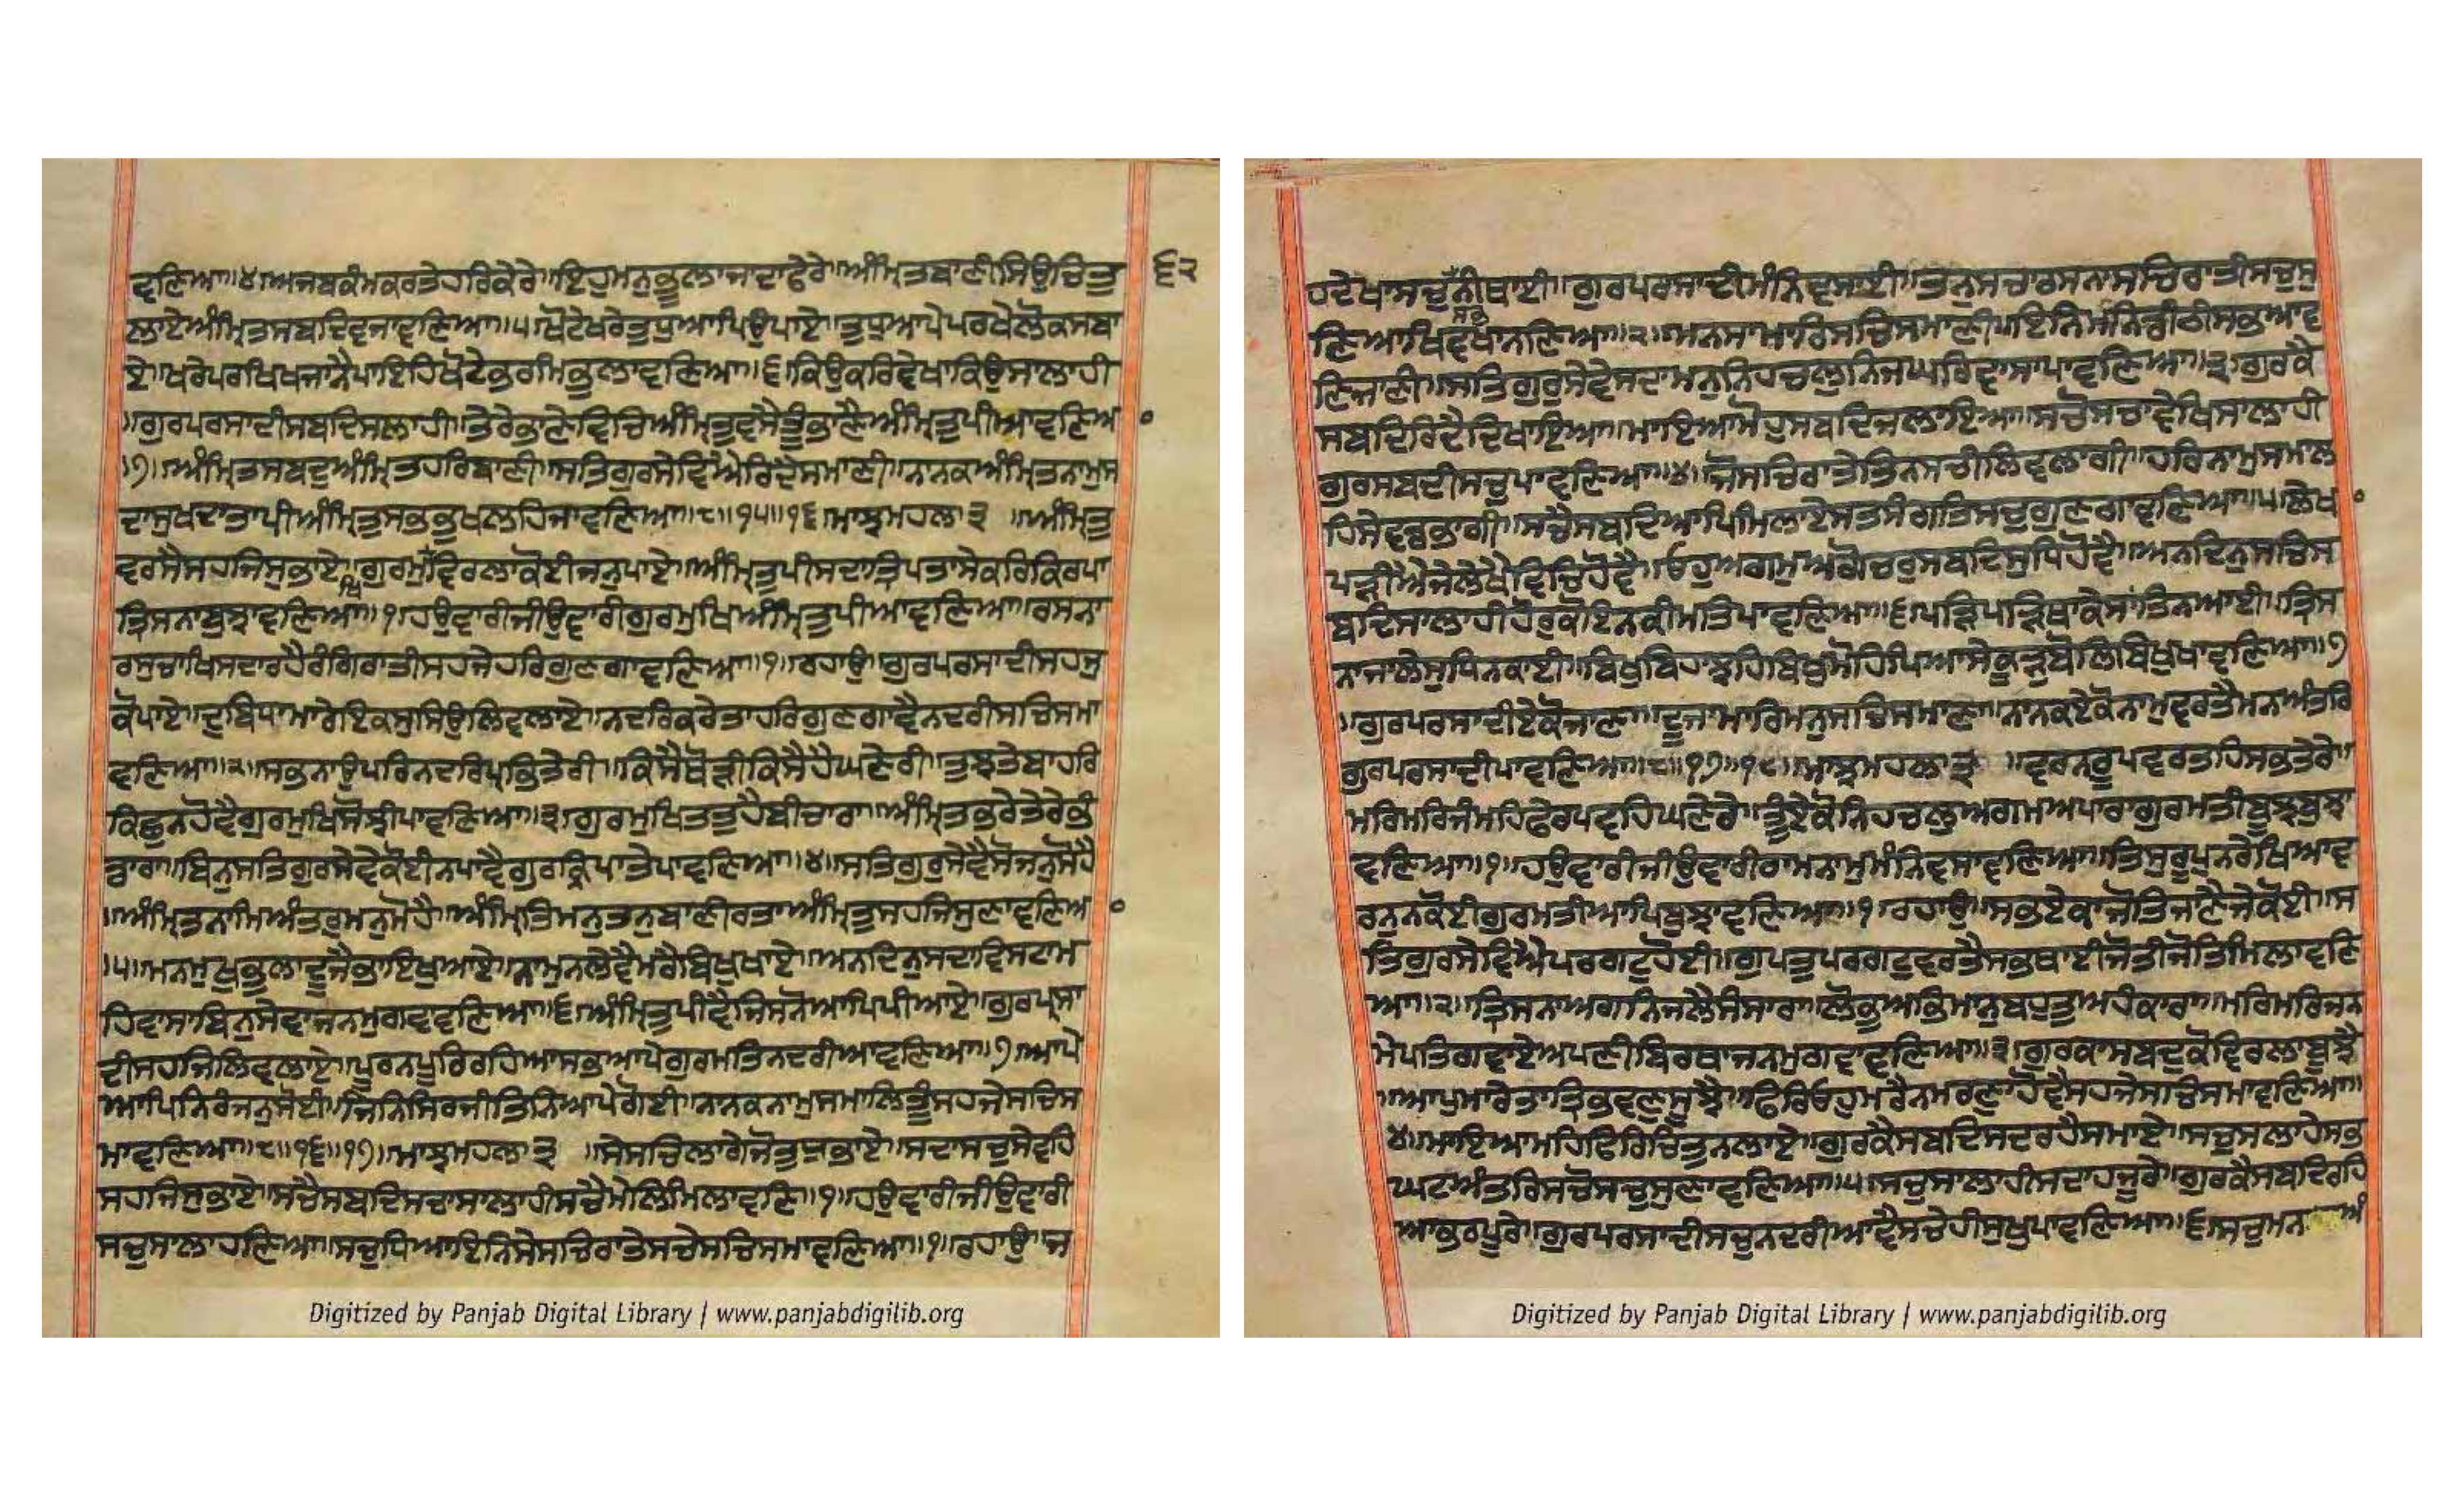 ਵਣਿਆ॥੪॥ਅਜਬਕੰਮਕਰਤੇਹਰਿਕੇਰੇ॥ਇਹੁਮਨੁਭੂਲਾਜਾਦਾਫੇਰੇ॥ਅੰਮ੍ਰਿਤਬਾਣੀਸਿਉਚਿਤੁ
੬੨
ਲਾਏਅੰਮ੍ਰਿਤਸਬਦਿਵਜਾਵਣਿਆ॥੫॥ਖੋਟੇਖਰੇਤੁਧੁਆਪਿਉਪਾਏ॥ਤੁਧੁਆਪੇਪਰਖੇਲੋਕਸਬਾ
ਏ॥ਖਰੇਪਰਖਿਖਜਾਨੈਪਾਇਹਿਖੋਟੇਭਰਮਿਭੁਲਾਵਣਿਆ॥੬॥ਕਿਉਕਰਿਵੇਖਾਕਿਉਸਾਲਾਹੀ
॥ਗੁਰਪਰਸਾਦੀਸਬਦਿਸਲਾਹੀ॥ਤੇਰੇਭਾਣੇਵਿਚਿਅੰਮ੍ਰਿਤੁਵਸੈਤੂੰਭਾਣੈਅੰਮ੍ਰਿਤੁਪੀਆਵਣਿਆ
॥੭॥ਅੰਮ੍ਰਿਤਸਬਦੁਅੰਮ੍ਰਿਤਹਰਿਬਾਣੀ॥ਸਤਿਗੁਰਸੇਵਿਐਰਿਦੈਸਮਾਣੀ॥ਨਾਨਕਅੰਮ੍ਰਿਤਨਾਮੁਸ
ਦਾਸੁਖਦਾਤਾਪੀਅੰਮ੍ਰਿਤੁਸਭਭੁਖਲਹਿਜਾਵਣਿਆ॥੮॥੧੫॥੧੬॥ਮਾਝਮਹਲਾ੩ ॥ਅੰਮ੍ਰਿਤੁ
ਵਰਸੈਸਹਜਿਸੁਭਾਏ॥ਗੁਰਮੁਖਿਵਿਰਲਾਕੋਈਜਨੁਪਾਏ॥ਅੰਮ੍ਰਿਤੁਪੀਸਦਾਤ੍ਰਿਪਤਾਸੇਕਰਿਕਿਰਪਾ
ਤ੍ਰਿਸਨਾਬੁਝਾਵਣਿਆ॥੧॥ਹਉਵਾਰੀਜੀਉਵਾਰੀਗੁਰਮੁਖਿਅੰਮ੍ਰਿਤੁਪੀਆਵਣਿਆ॥ਰਸਨਾ
ਰਸੁਚਾਖਿਸਦਾਰਹੈਰੰਗਿਰਾਤੀਸਹਜੇਹਰਿਗੁਣਗਾਵਣਿਆ॥੧॥ਰਹਾਉ॥ਗੁਰਪਰਸਾਦੀਸਹਜੁ
ਕੋਪਾਏ॥ਦੁਬਿਧਾਮਾਰੇਇਕਸੁਸਿਉਲਿਵਲਾਏ॥ਨਦਰਿਕਰੇਤਾਹਰਿਗੁਣਗਾਵੈਨਦਰੀਸਚਿਸਮਾ
ਵਣਿਆ॥੨॥ਸਭਨਾਉਪਰਿਨਦਰਿਪ੍ਰਭਤੇਰੀ॥ਕਿਸੈਥੋੜੀਕਿਸੈਹੈਘਣੇਰੀ॥ਤੁਝਤੇਬਾਹਰਿ
ਕਿਛੁਨਹੋਵੈਗੁਰਮੁਖਿਸੋਝੀਪਾਵਣਿਆ॥੩॥ਗੁਰਮੁਖਿਤਤੁਹੈਬੀਚਾਰਾ॥ਅੰਮ੍ਰਿਤਭਰੇਤੇਰੇਭੰ
ਡਾਰਾ॥ਬਿਨੁਸਤਿਗੁਰਸੇਵੇਕੋਈਨਪਾਵੈਗੁਰਕ੍ਰਿਪਾਤੇਪਾਵਣਿਆ॥੪॥ਸਤਿਗੁਰੁਸੇਵੈਸੋਜਨੁਸੋਹੈ
॥ਅੰਮ੍ਰਿਤਨਾਮਿਅੰਤਰੁਮਨੁਮੋਹੈ॥ਅੰਮ੍ਰਿਤਿਮਨੁਤਨੁਬਾਣੀਰਤਾਅੰਮ੍ਰਿਤੁਸਹਜਿਸੁਣਾਵਣਿਆ
॥੫॥ਮਨਮੁਖੁਭੂਲਾਦੂਜੈਭਾਇਖੁਆਏ॥ਨਾਮੁਨਲੇਵੈਮਰੈਬਿਖੁਖਾਏ॥ਅਨਦਿਨੁਸਦਾਵਿਸਟਾਮ
ਹਿਵਾਸਾਬਿਨੁਸੇਵਾਜਨਮੁਗਵਾਵਣਿਆ॥੬॥ਅੰਮ੍ਰਿਤੁਪੀਵੈਜਿਸਨੋਆਪਿਪੀਆਏ॥ਗੁਰਪ੍ਰਸਾ
ਦੀਸਹਜਿਲਿਵਲਾਏ॥ਪੂਰਨਪੂਰਿਰਹਿਆਸਭਆਪੇਗੁਰਮਤਿਨਦਰੀਆਵਣਿਆ॥੭॥ਆਪੇ
ਆਪਿਨਿਰੰਜਨੁਸੋਈ॥ਜਿਨਿਸਿਰਜੀਤਿਨਿਆਪੇਗੋਈ॥ਨਾਨਕਨਾਮੁਸਮਾਲਿਤੂੰਸਹਜੇਸਚਿਸ
ਮਾਵਣਿਆ॥੮॥੧੬॥੧੭॥ਮਾਝਮਹਲਾ੩ ॥ਸੇਸਚਿਲਾਗੇਜੋਤੁਧੁਭਾਏ॥ਸਦਾਸਚੁਸੇਵਹਿ
ਸਹਜਿਸੁਭਾਏ॥ਸਚੈਸਬਦਿਸਚਾਸਾਲਾਹੀਸਚੈਮੇਲਿਮਿਲਾਵਣਿ॥੧॥ਹਉਵਾਰੀਜੀਉਵਾਰੀ
ਸਚੁਸਾਲਾਹਣਿਆ॥ਸਚੁਧਿਆਇਨਿਸੇਸਚਿਰਾਤੇਸਚੇਸਚਿਸਮਾਵਣਿਆ॥੧॥ਰਹਾਉ॥ਜ
Digitized by Panjab Digital Library | www.panjabdigilib.org
ਹਦੇਖਾਸਚੁਸਭਨੀਥਾਈ॥ਗੁਰਪਰਸਾਦੀਮੰਨਿਵਸਾਈ॥ਤਨੁਸਚਾਰਸਨਾਸਚਿਰਾਤੀਸਚੁਸੁ
ਣਿਆਖਿਵਖਾਨਣਿਆ॥੨॥ਮਨਸਾਮਾਰਿਸਚਿਸਮਾਣੀ॥ਇਨਿਮਨਿਡੀਠੀਸਭਆਵ
ਣਿਜਾਣੀ॥ਸਤਿਗੁਰੁਸੇਵੇਸਦਾਮਨੁਨਿਹਚਲੁਨਿਜਘਰਿਵਾਸਾਪਾਵਣਿਆ॥੩॥ਗੁਰਕੈ
ਸਬਦਿਰਿਦੈਦਿਖਾਇਆ॥ਮਾਇਆਮੋਹੁਸਬਦਿਜਲਾਇਆ॥ਸਚੋਸਚਾਵੇਖਿਸਾਲਾਹੀ
ਗੁਰਸਬਦੀਸਚੁਪਾਵਣਿਆ॥੪॥ਜੋਸਚਿਰਾਤੇਤਿਨਸਚੀਲਿਵਲਾਗੀ॥ਹਰਿਨਾਮੁਸਮਾਲ
ਹਿਸੇਵਡਭਾਗੀ॥ਸਚੈਸਬਦਿਆਪਿਮਿਲਾਏਸਤਸੰਗਤਿਸਚੁਗੁਣਗਾਵਣਿਆ॥੫॥ਲੇਖਾ
ਪੜੀਐਜੇਲੇਖੇਵਿਚਿਹੋਵੈ॥ਓਹੁਅਗਮੁਅਗੋਚਰੁਸਬਦਿਸੁਧਿਹੋਵੈ॥ਅਨਦਿਨੁਸਚਿਸ
ਬਦਿਸਾਲਾਹੀਹੋਰੁਕੋਇਨਕੀਮਤਿਪਾਵਣਿਆ॥੬॥ਪੜਿਪੜਿਥਾਕੇਸਾਂਤਿਨਆਈ॥ਤ੍ਰਿਸ
ਨਾਜਾਲੇਸੁਧਿਨਕਾਈ॥ਬਿਖੁਬਿਹਾਝਹਿਬਿਖੁਮੋਹਪਿਆਸੇਕੂੜੁਬੋਲਿਬਿਖੁਖਾਵਣਿਆ॥੭
॥ਗੁਰਪਰਸਾਦੀਏਕੋਜਾਣਾ॥ਦੂਜਾਮਾਰਿਮਨੁਸਚਿਸਮਾਣਾ॥ਨਾਨਕਏਕੋਨਾਮੁਵਰਤੈਮਨਅੰਤਰਿ
ਗੁਰਪਰਸਾਦੀਪਾਵਣਿਆ॥੮॥੧੭॥੧੮॥ਮਾਝਮਹਲਾ੩ ॥ਵਰਨਰੂਪਵਰਤਹਿਸਭਤੇਰੇ॥
ਮਰਿਮਰਿਜੰਮਹਿਫੇਰਪਵਹਿਘਣੇਰੇ॥ਤੂੰਏਕੋਨਿਹਚਲੁਅਗਮਅਪਾਰਾਗੁਰਮਤੀਬੂਝਬੁਝਾ
ਵਣਿਆ॥੧॥ਹਉਵਾਰੀਜੀਉਵਾਰੀਰਾਮਨਾਮੁਮੰਨਿਵਸਾਵਣਿਆ॥ਤਿਸੁਰੂਪੁਨਰੇਖਿਆਵ
ਰਨੁਨਕੋਈਗੁਰਮਤੀਆਪਿਬੁਝਾਵਣਿਆ॥੧॥ਰਹਾਉ॥ਸਭਏਕਾਜੋਤਿਜਾਣੈਜੇਕੋਈ॥ਸ
ਤਿਗੁਰਸੇਵਿਐਪਰਗਟੁਹੋਈ॥ਗੁਪਤੁਪਰਗਟੁਵਰਤੈਸਭਥਾਈਜੋਤੀਜੋਤਿਮਿਲਾਵਣਿ
ਆ॥੨॥ਤ੍ਰਿਸਨਾਅਗਨਿਜਲੈਸੰਸਾਰਾ॥ਲੋਭੁਅਭਿਮਾਨੁਬਹੁਤੁਅਹੰਕਾਰਾ॥ਮਰਿਮਰਿਜਨ
ਮੇਪਤਿਗਵਾਏਅਪਣੀਬਿਰਥਾਜਨਮੁਗਵਾਵਣਿਆ॥੩॥ਗੁਰਕਾਸਬਦੁਕੋਵਿਰਲਾਬੂਝੈ
॥ਆਪੁਮਾਰੇਤਾਤ੍ਰਿਭਵਣੁਸੂਝੈ॥ਫਿਰਿਓਹੁਮਰੈਨਮਰਣਾਹੋਵੈਸਹਜੇਸਾਚਿਸਮਾਵਣਿਆ॥
੪॥ਮਾਇਆਮਹਿਫਿਰਿਚਿਤੁਨਲਾਏ॥ਗੁਰਕੈਸਬਦਿਸਦਰਹੈਸਮਾਏ॥ਸਚੁਸਲਾਹੇਸਭ
ਘਟਅੰਤਰਿਸਚੋਸਚੁਸੁਣਾਵਣਿਆ॥੫॥ਸਚੁਸਾਲਾਹੀਸਦਾਹਜੂਰੇ॥ਗੁਰਕੈਸਬਦਿਰਹਿ
ਆਭਰਪੂਰੇ॥ਗੁਰਪਰਸਾਦੀਸਚੁਨਦਰੀਆਵੈਸਚੇਹੀਸੁਖੁਪਾਵਣਿਆ॥੬॥ਸਚੁਮਨ ਅੰ
Digitized by Panjab Digital Library | www.panjabdigilib.org